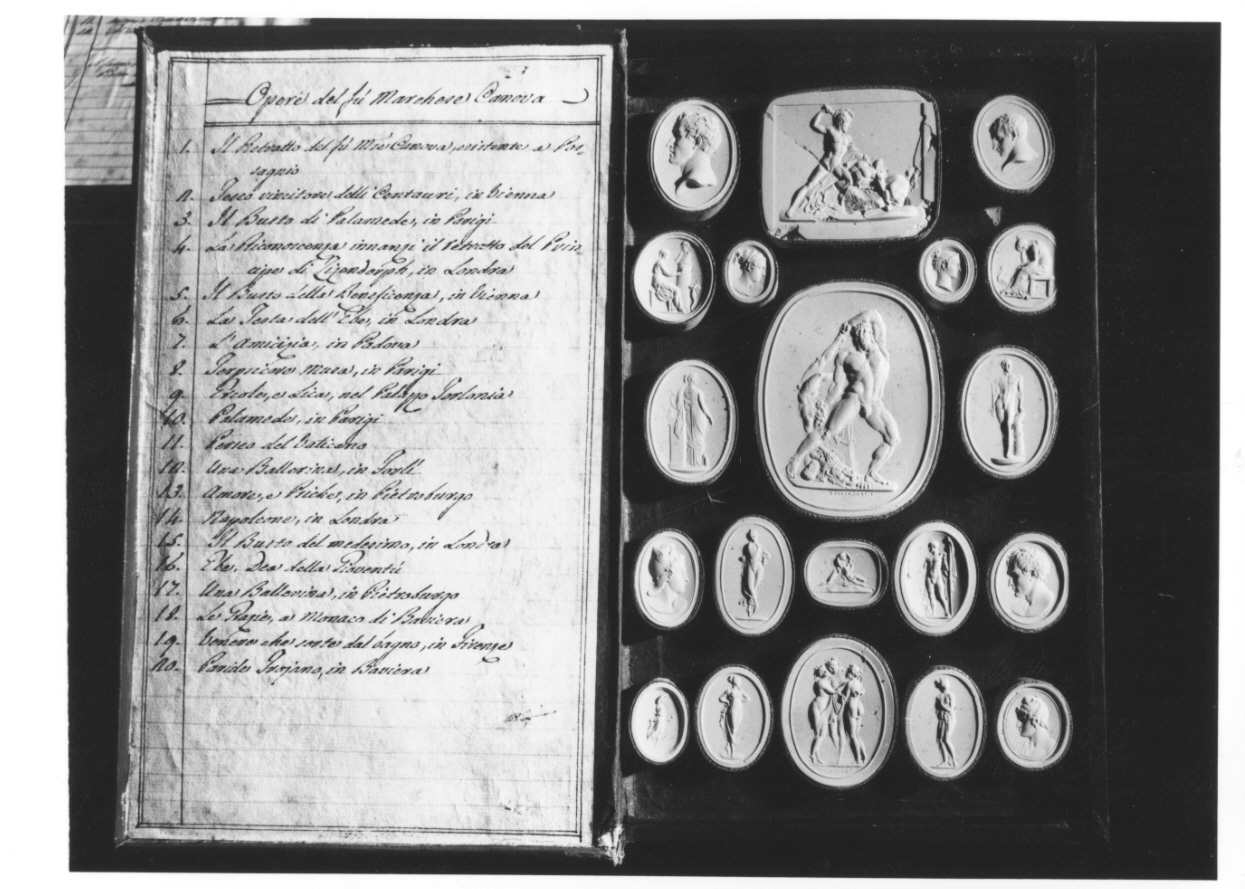 Opere del fú Marchese Canova
1. Il Ritratto del fú Mse Canova, esistente a Pos-
sagnio
2. Teseo vincitore delli Centauri, in Vienna
3. Il Busto di Palamede, in Parigi
4. La Riconoscenza innanzi il retratto del Prin-
cipe di in Londra
5. Il Busto della Beneficenza, in Vienna
6. La Testa dell' Ebe, in Londra
7. L'Amicizia, in Padova
8. Terpsicore Musa, in Parigi
9. Ercole, e Lica, nel Palazzo Torlonia
10. Palamede, in Parigi
11. Perseo del Vaticano
12. Una Ballerina, in Forlí
13. Amore, e Psiche, in Pietroburgo
14. Napoleone, in Londra
15. Il Busto del medesimo, in Londra
16. Ebe, Dea della Gioventú
17. Una Ballerina, in Pietroburgo
18. Le Grazie, a Monaco di Baviera
19. Venere che sorte dal bagno, in Firenze
20. Paride Trojano, in Baviera